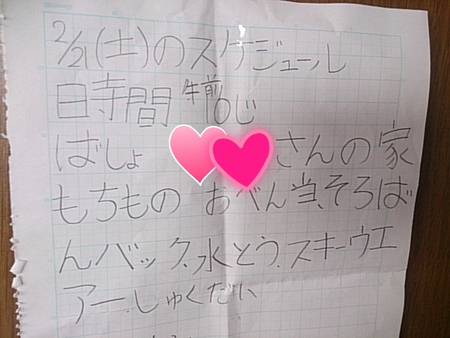 2/21(土)のスケジュール
日時間 午前10じ
ばしょ さんの家
もちもの おべん当、そろば
んバック、水とう、スキーウエ
アー、しゅくだい